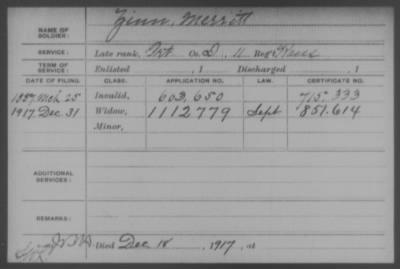 NAME OF SOLDIER: Zinn, Merritt
SERVICE: Late rank, Pvt Co. D, 11 Reg't Kans
TERM OF SERVICE: Enlisted , 1 Discharged , 1
DATE OF FILING. CLASS. APPLICATION NO. LAW. CERTIFICATE NO.
1887, Mch 25 Invalid, 603,650 715,333
1917, Dec 31 Widow, 1112779 Sept 851.614
Minor,
ADDITIONAL SERVICES:
REMARKS:
Died Dec 18, 1917, at